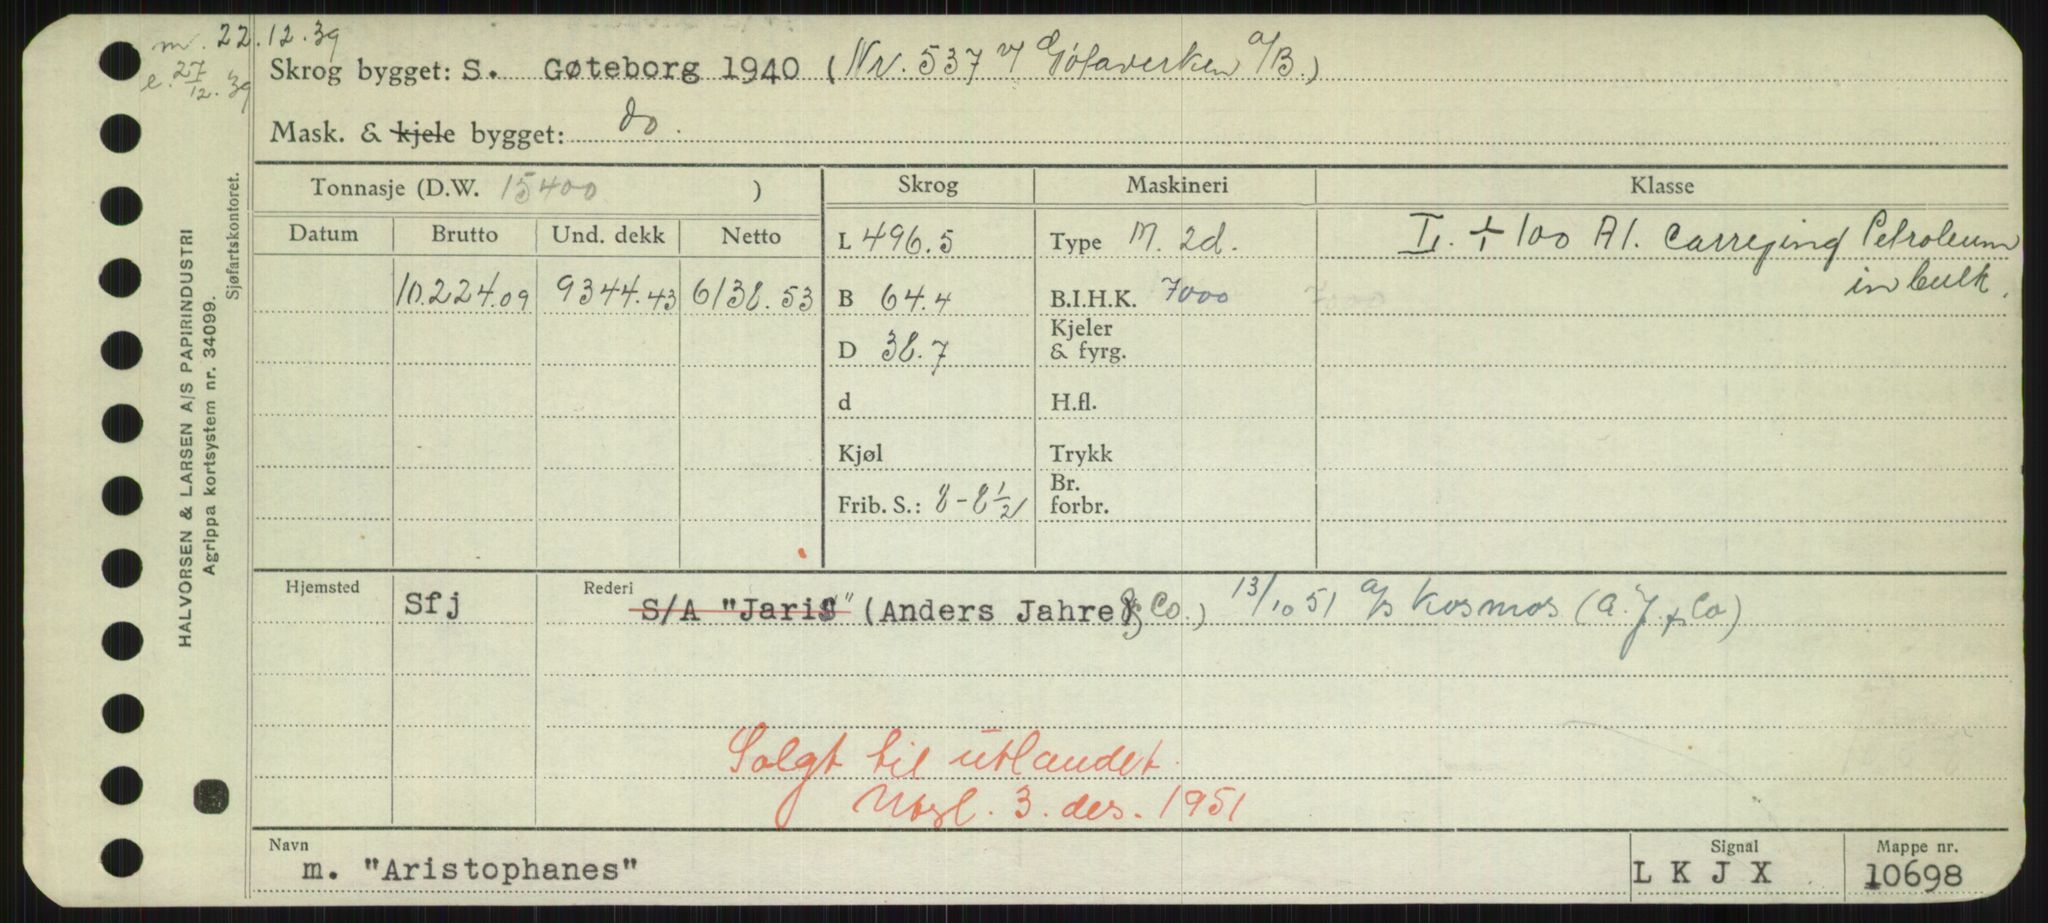 m. 22.12.39
e. 27/12.39
Skrog bygget: S. Gøteborg 1940 (Nr. 537 v/ Götaverken A/B.)
Mask. & kjele bygget: do.
Tonnasje (D.W. 15400 )
Skrog
Maskineri
Klasse
Datum
Brutto
Und. dekk
Netto
10.224.09
9344.43
6138.53
L 496.5
B 64.4
D 38.7
d
Kjøl
Frib. S.: 8-8 1/2
Type M. 2d.
B.I.H.K. 7000
Kjeler
& fyrg.
H.fl.
Trykk
Br.
forbr.
I. + 100 A1. Carreying Petroleum
in bulk.
Hjemsted
Sfj
Rederi
S/A "Jaris" (Anders Jahre & Co.) 13/10 51 A/S Kosmos (A.J. & Co)
Solgt til utlandet.
Nosl. 3. des. 1951
Navn
m. "Aristophanes"
Signal
L K J X
Mappe nr.
10698
HALVORSEN & LARSEN A/S PAPIRINDUSTRI
Agrippa kortsystem nr. 34099.
Sjøfartskontoret.